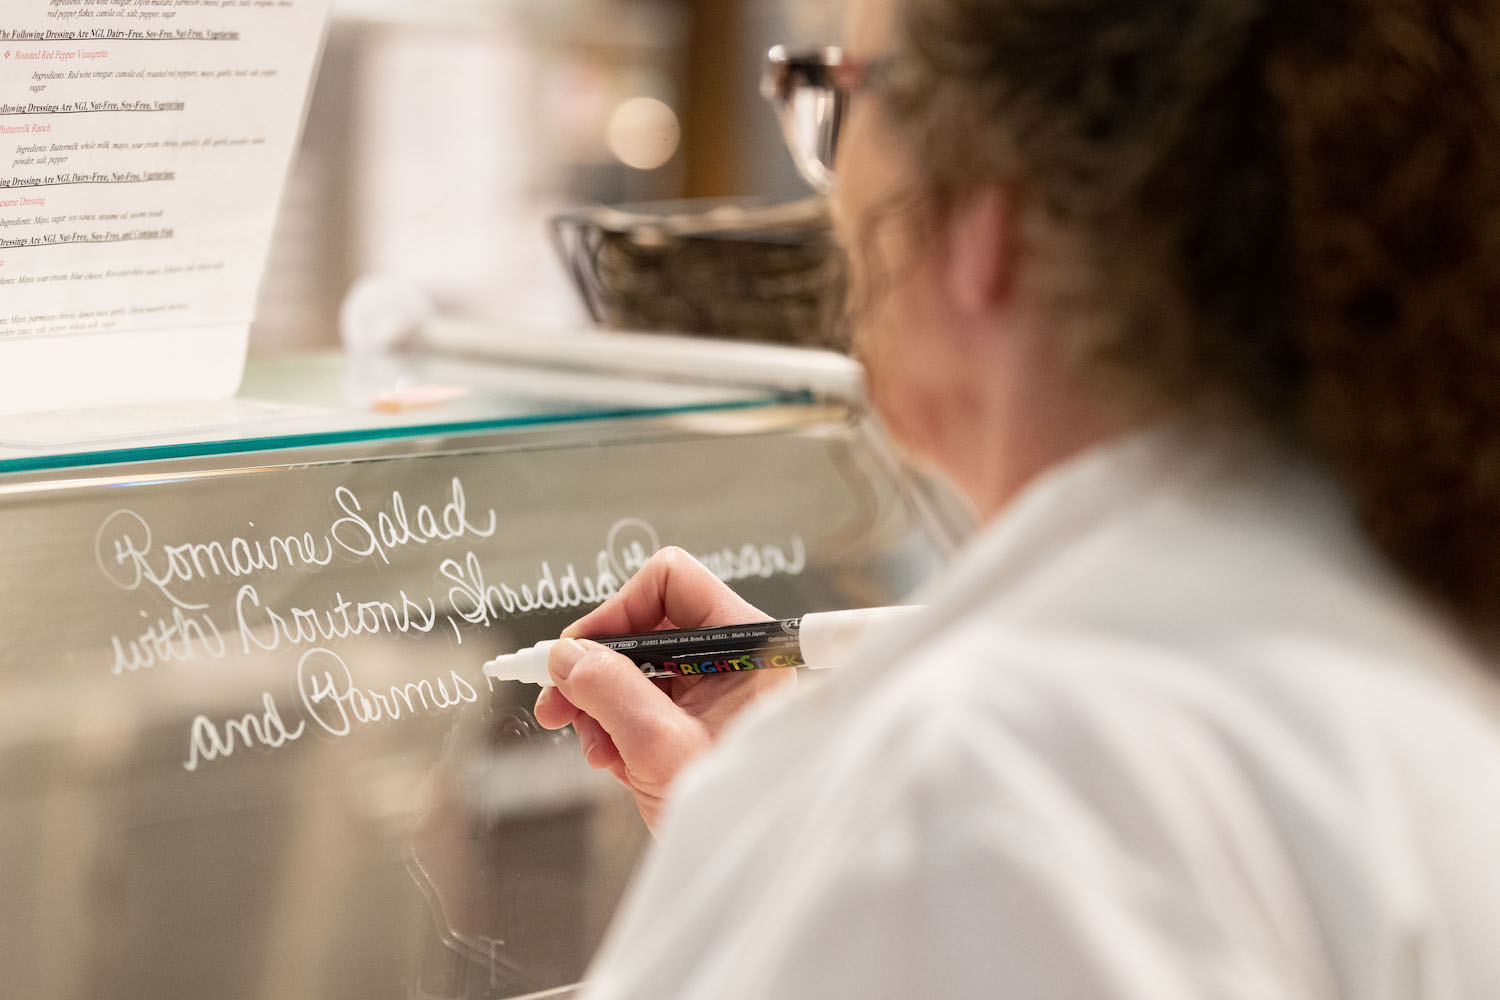 Ingredients: Red wine vinegar, Dijon mustard, parmesan cheese, garlic, basil, oregano,
red pepper flakes, canola oil, salt, pepper, sugar
The Following Dressings Are NGI, Dairy-Free, Soy-Free, Nut-Free, Vegetarian:
❖ Roasted Red Pepper Vinaigrette
Ingredients: Red wine vinegar, canola oil, roasted red peppers, mayo, garlic, basil, salt, pepper
sugar
ollowing Dressings Are NGI, Nut-Free, Soy-Free, Vegetarian
Buttermilk Ranch
Ingredients: Buttermilk, whole milk, mayo, sour cream, chives, parsley, dill, garlic powder, onion
powder, salt, pepper
ing Dressings Are NGI, Dairy-Free, Nut-Free, Vegetarian:
esame Dressing
Ingredients: Mayo, sugar, soy sauce, sesame oil, sesame seeds
Dressings Are NGI, Nut-Free, Soy-Free, and Contain Fish
dients: Mayo, sour cream, blue cheese, Worcestershire sauce,
nts: Mayo, parmesan cheese, lemon juice, garlic, Dijon mustard
rshire sauce, salt, pepper, whole milk, sugar
Romaine Salad
with Croutons, Shredded Parmesan
and Parmes
POINT ©2005 Sanford, Oak Brook, IL 60523. Made in Japan.
BRIGHTSTICK